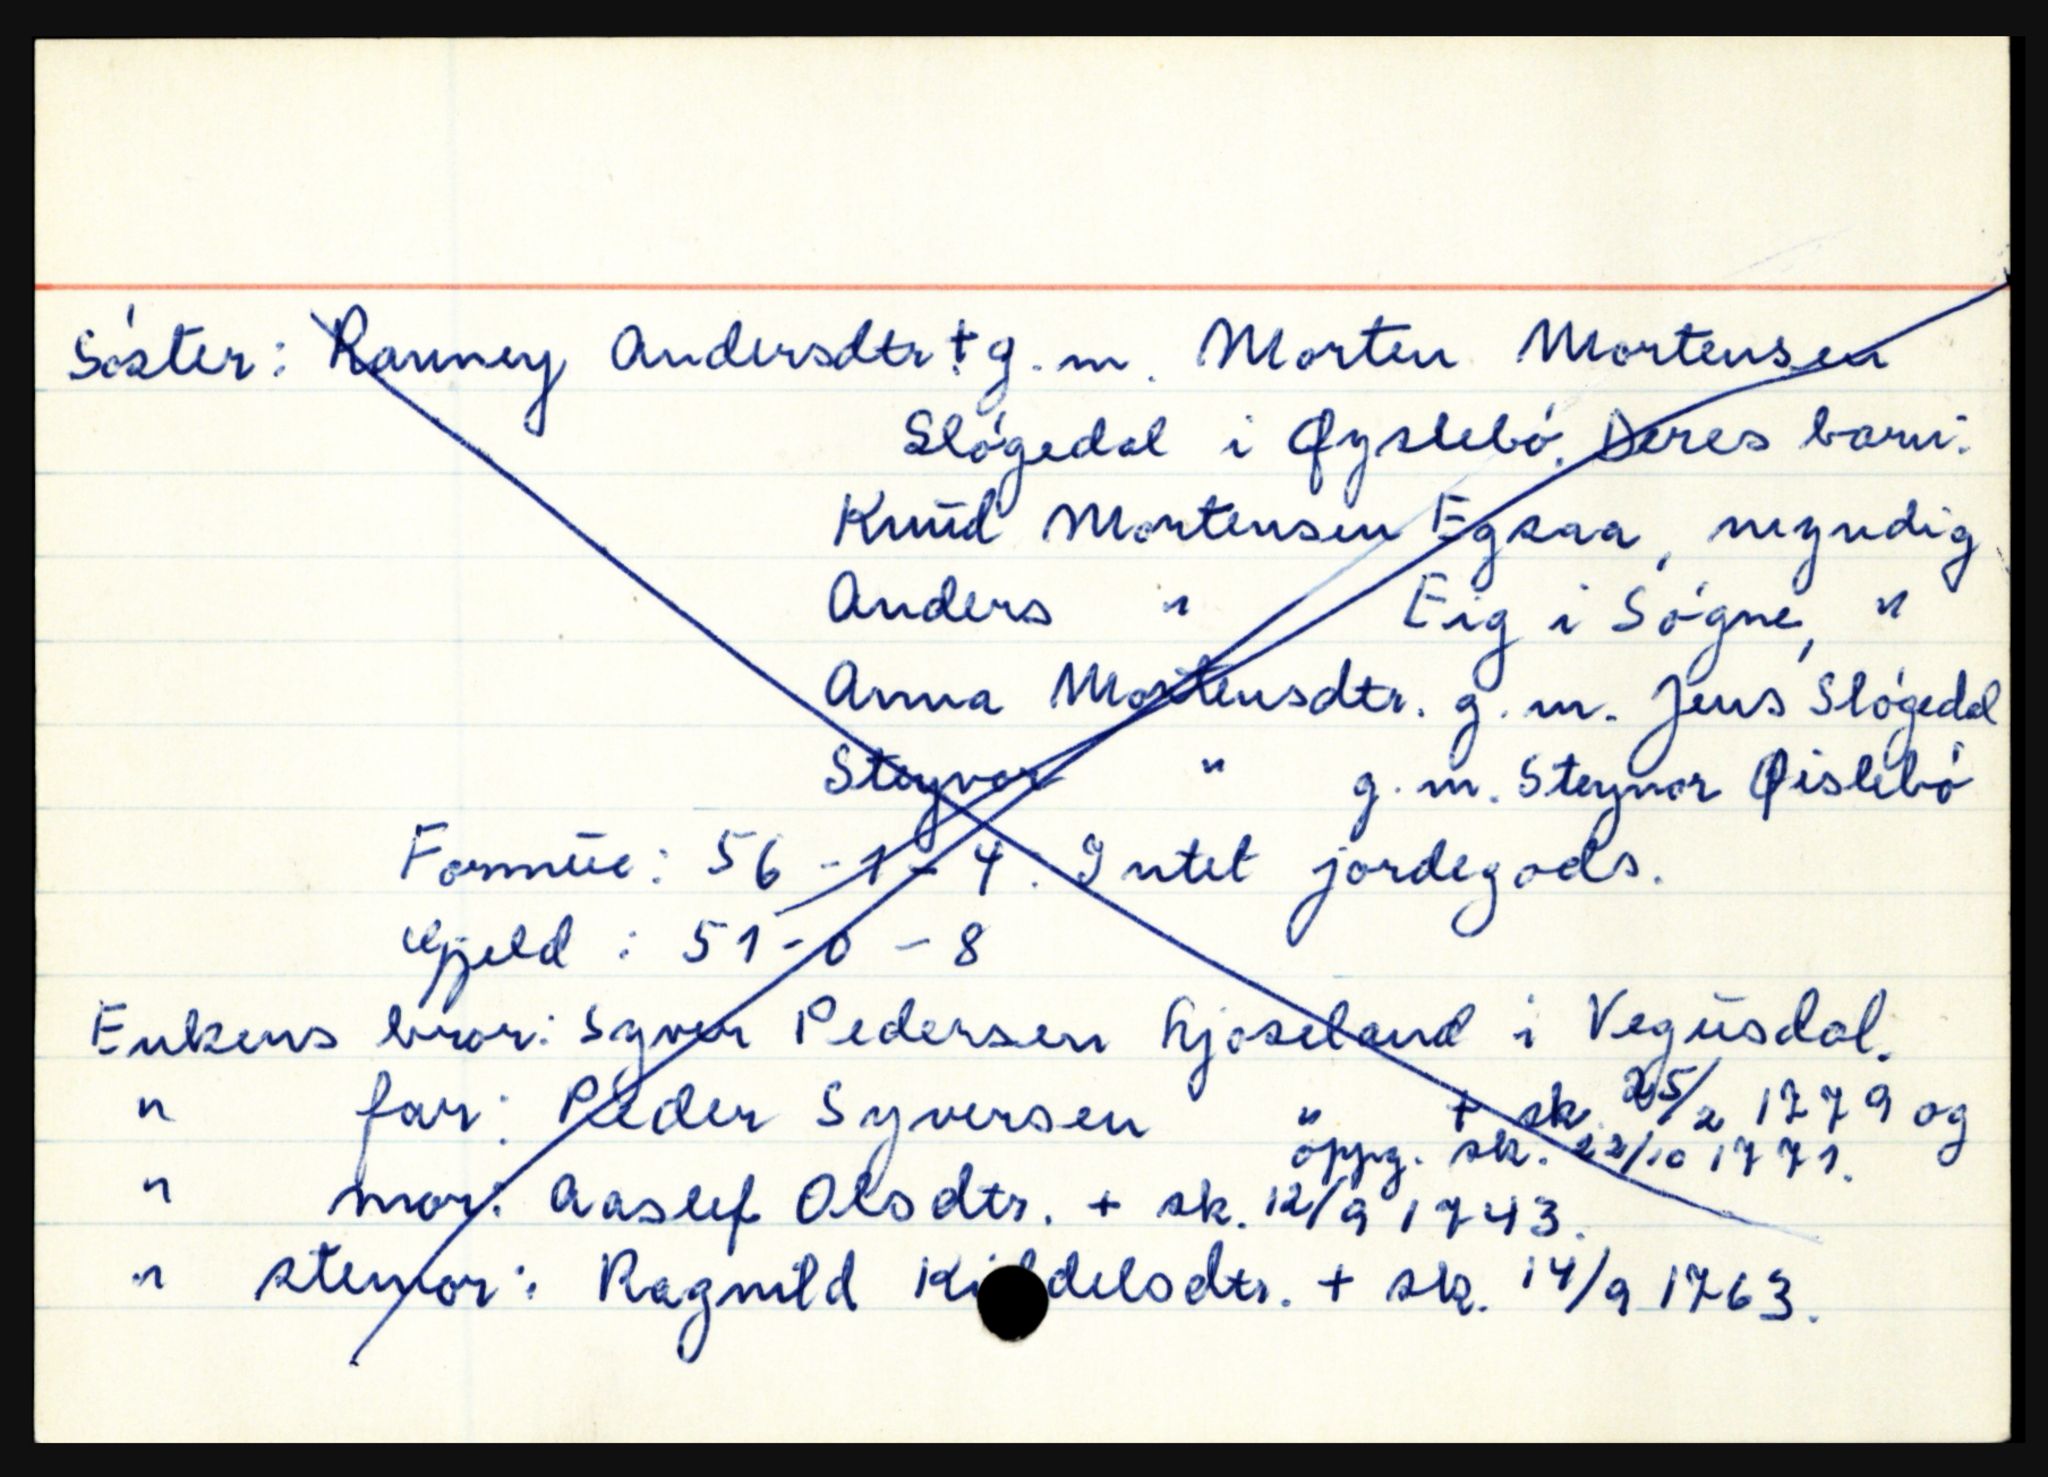 Søster: Ranney Andersdtr † g.m. Morten Mortensen
Slógedal i Øyslebó. Deres barn:
Knud Mortensen Egsaa, myndig
Anders " Eig i Sógne, "
Anna Mortensdtr. g.m. Jens Slógedal
Steyvor " g.m. Steynor Øislebó
Formue: 56-1-4. Intet jordegods.
Gjeld: 51-0-8
Enkens bror: Syver Pedersen Gjoseland i Vegusdal.
" far: Peder Syversen " + sk. 25/2 1779 og
oppg. sk. 22/10 1771.
" mor: Aaslef Olsdtr. + sk. 12/9 1743.
" stemor: Ragnild Ki delsdtr. + sk. 14/9 1763.